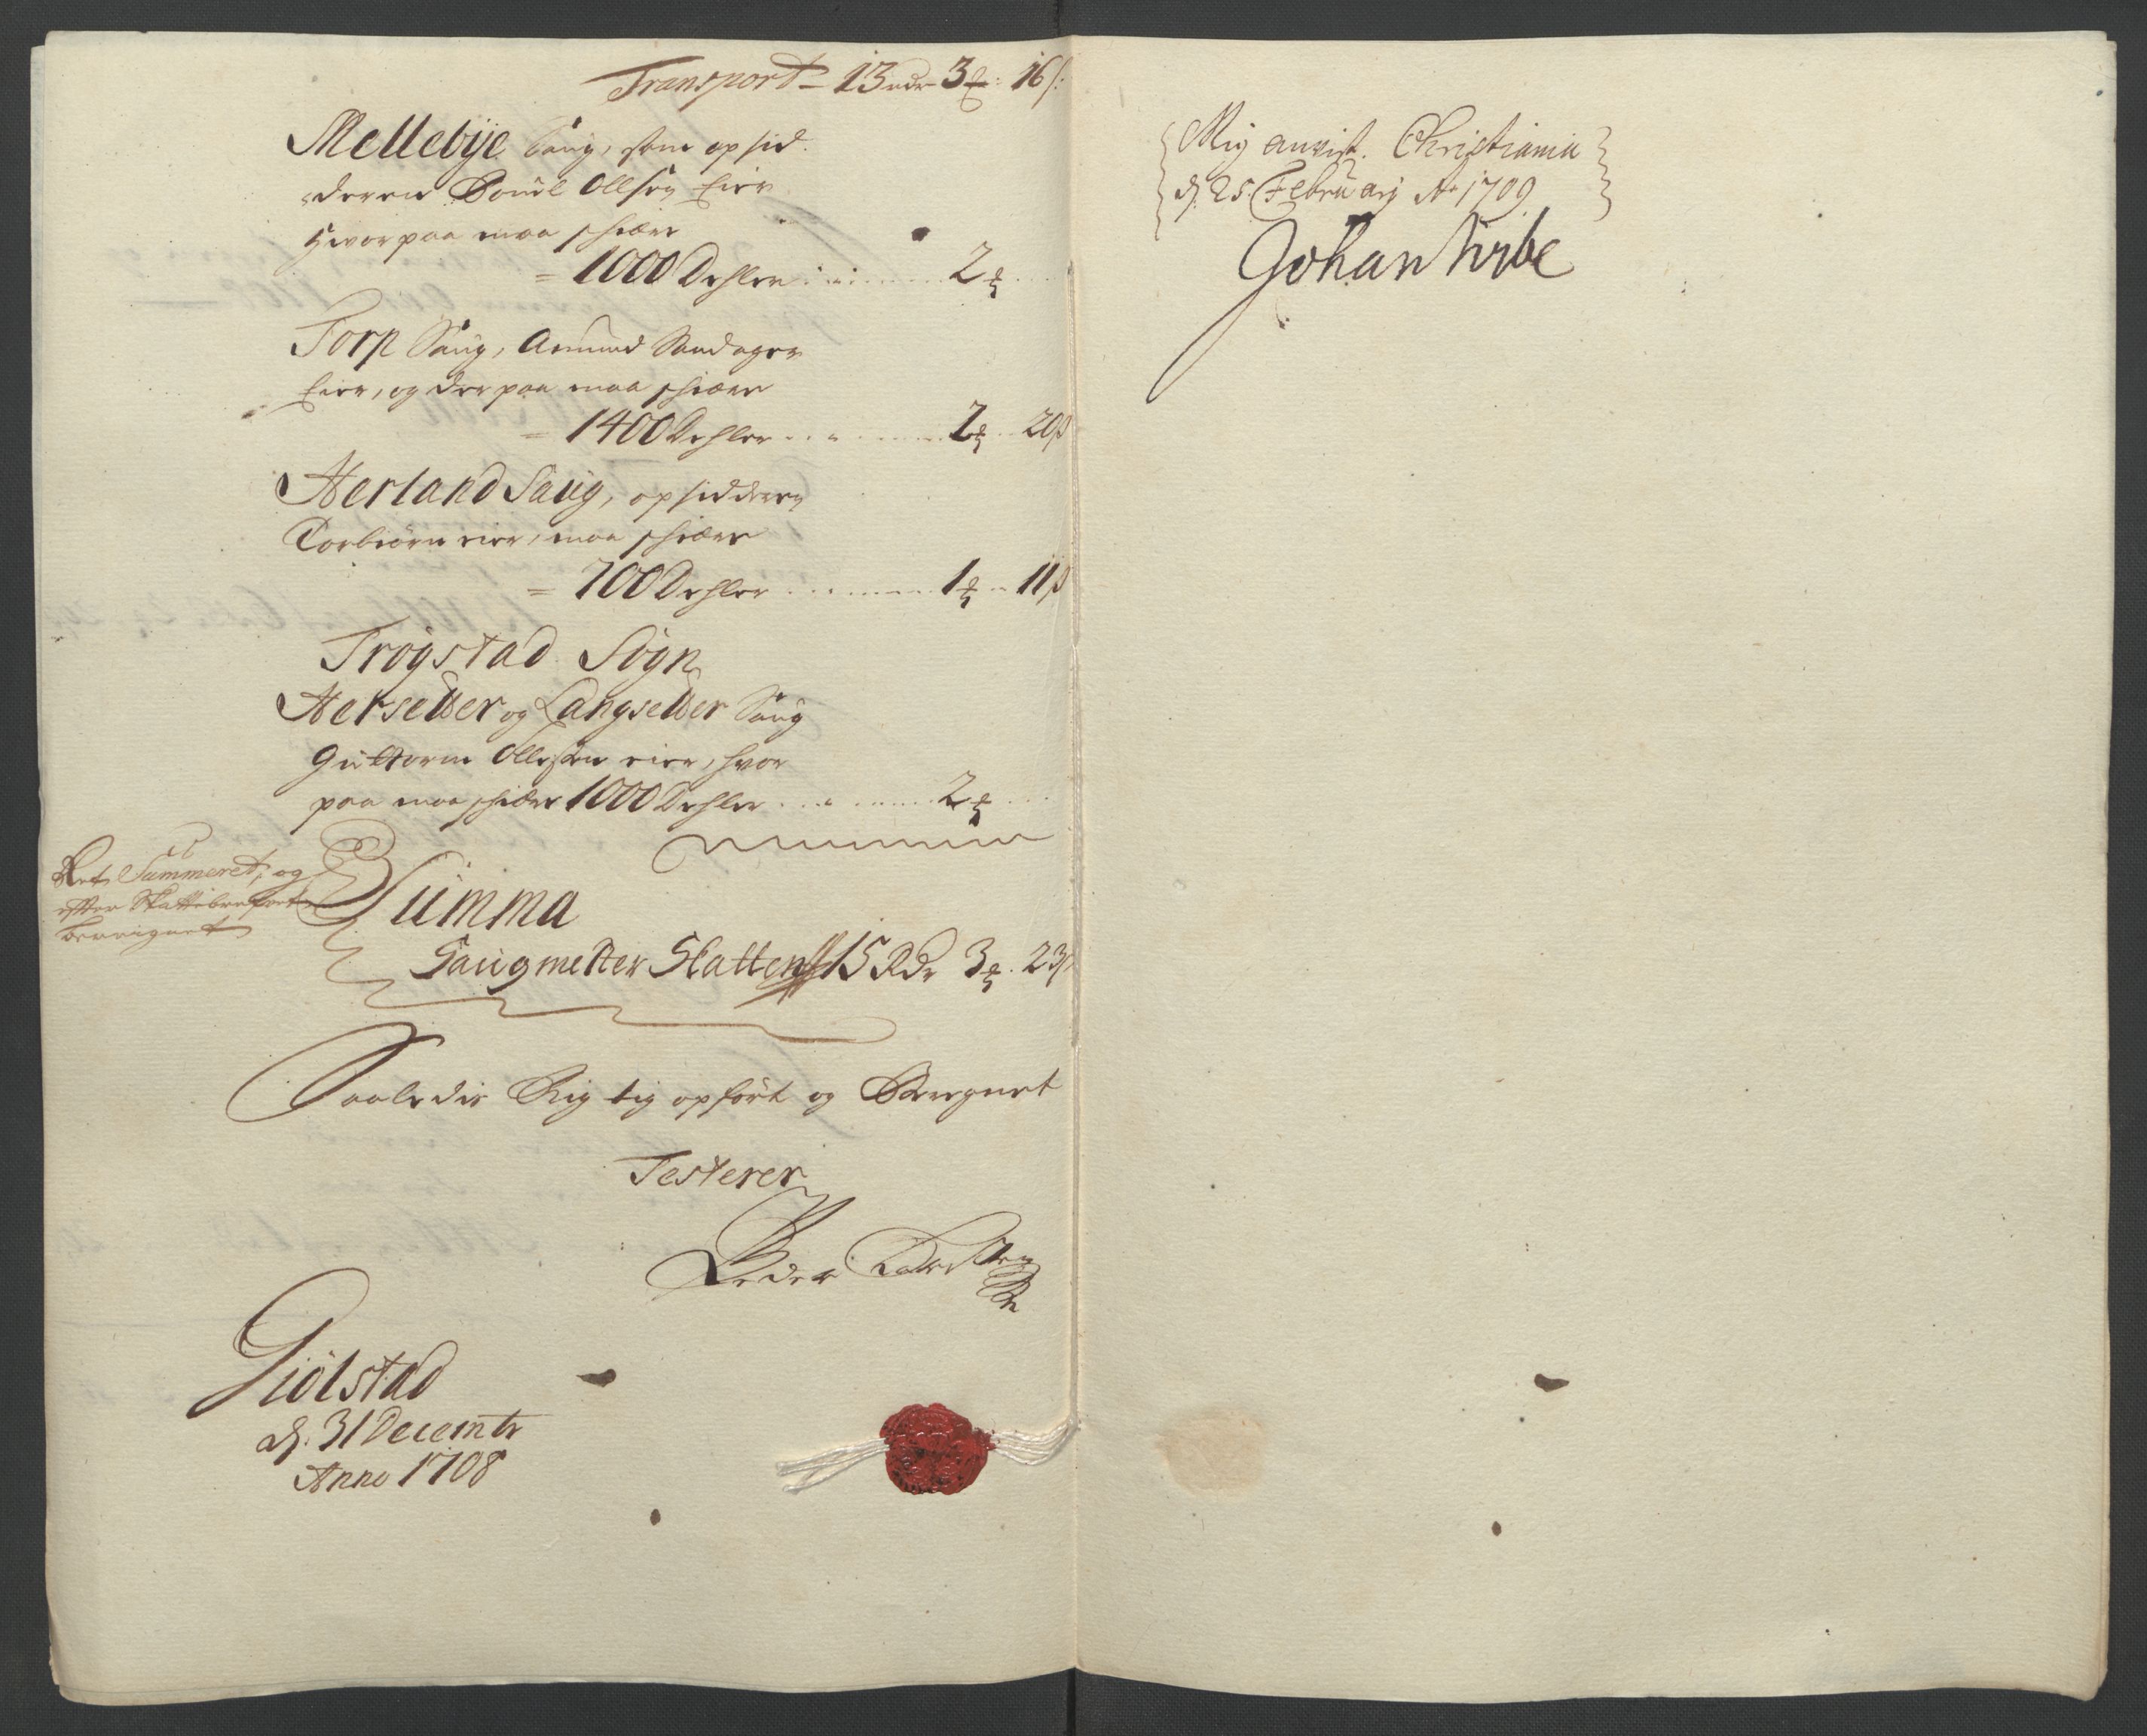 Transport – 13 rdr 3 ℔: 16 s:
Mellebÿe Saug, som opsid
deren Pouel Ollsen Eier
Hvorpaa maa schiære
= 1000 Dehler ...... 2 ℔ ...
Torp Saug, Amund Sandager
Eier, og derpaa maa schiære
= 1400 Dehler ...... 2 ℔ .. 20 β
Herland Saug, opsidderen
Torbiørn eier, maa schiære
= 700 Dehler ...... 1 ℔ .. 11 β
Trøgstad Sogn
Hersetter og Langsetter Saug
Guttorm Ollesen eier, hvor
paa maa schiære 1000 Dehler ...... 2 ℔ ...
Ret Summeret, og
efter Skattebrefvet
bereignet
Summa
Saugmester Skatten 15 Rdr 3 ℔. 23 β
Saaledis Rigtig opført og Beregnet
Testerer
Peder
Giølstad
d. 31 Decembr
Anno 1708
Mig anvist. Christiania
d. 25. Februarij Ao 1709
Johan Wibe